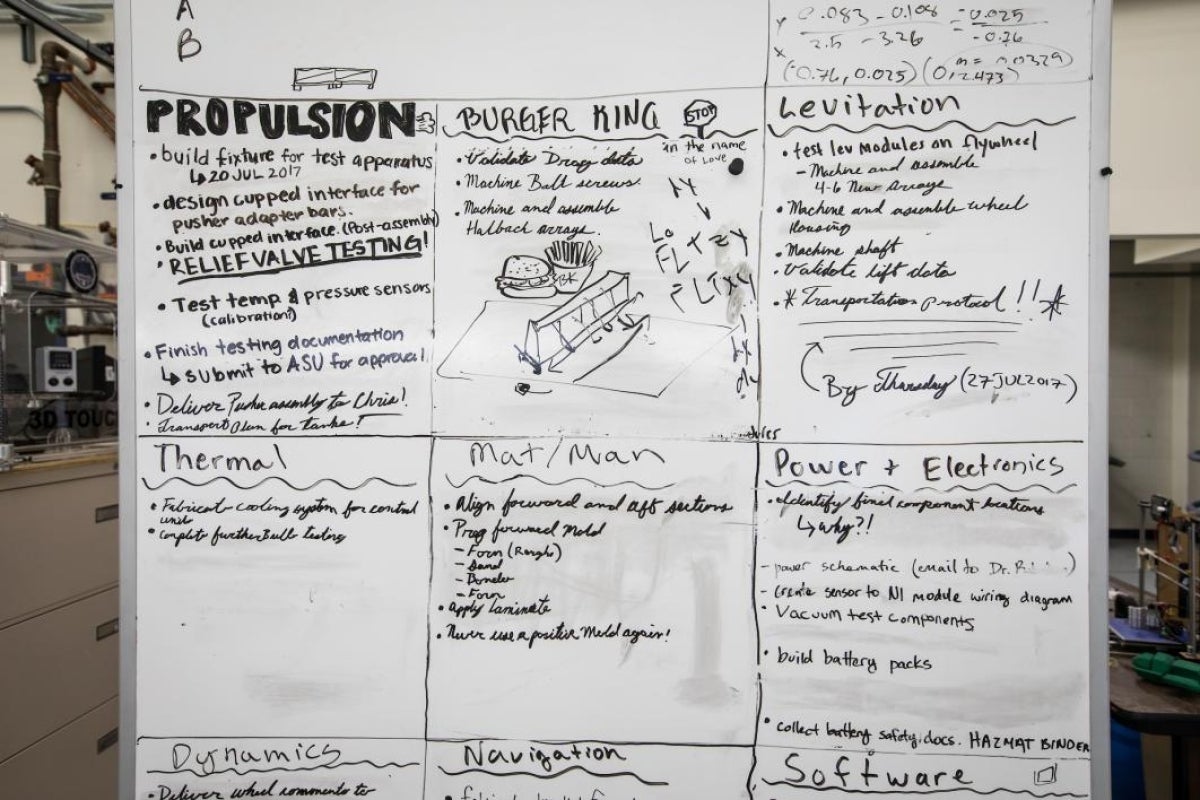 A
B
0.083 - 0.108 = -0.025
2.5 - 3.26 -0.76
m = 0.0329
(-0.76, 0.025) (0, 2.473)
PROPULSION
• build fixture for test apparatus
↳ 20 JUL 2017
• design cupped interface for
pusher adapter bars.
• Build cupped interface. (Post-assembly)
• RELIEF VALVE TESTING!
• Test temp & pressure sensors
(calibration?)
• Finish testing documentation
↳ submit to ASU for approval.
• Deliver Pusher assembly to Chris!
• Transport Plan for tanks!
BURGER KING
STOP
in the name
of Love
• Validate Drag data
• Machine Ball screws.
• Machine and assemble
Halbach arrays.
BK
Levitation
• test lev modules on flywheel
- Machine and assemble
4-6 New Arrays
• Machine and assemble wheel
Housing
• Machine shaft
• Validate lift data
• * Transportation protocol !! *
By Thursday (27 JUL 2017)
Thermal
• Fabricate cooling system for control
unit
• Complete further Bulb testing
Mat/Man
• Align forward and aft sections
• Prep forward Mold
- Form (Rough)
- Sand
- Form
• Apply Laminate
• Never use a positive Mold again!
Power + Electronics
• Identify final component locations
↳ why?!
- power schematic (email to Dr.
- Create sensor to NI module wiring diagram
• Vacuum test components
• build battery packs
• collect battery safety docs. HAZMAT BINDER
Dynamics
• Deliver wheel components to
Navigation
Software
3D TOUC